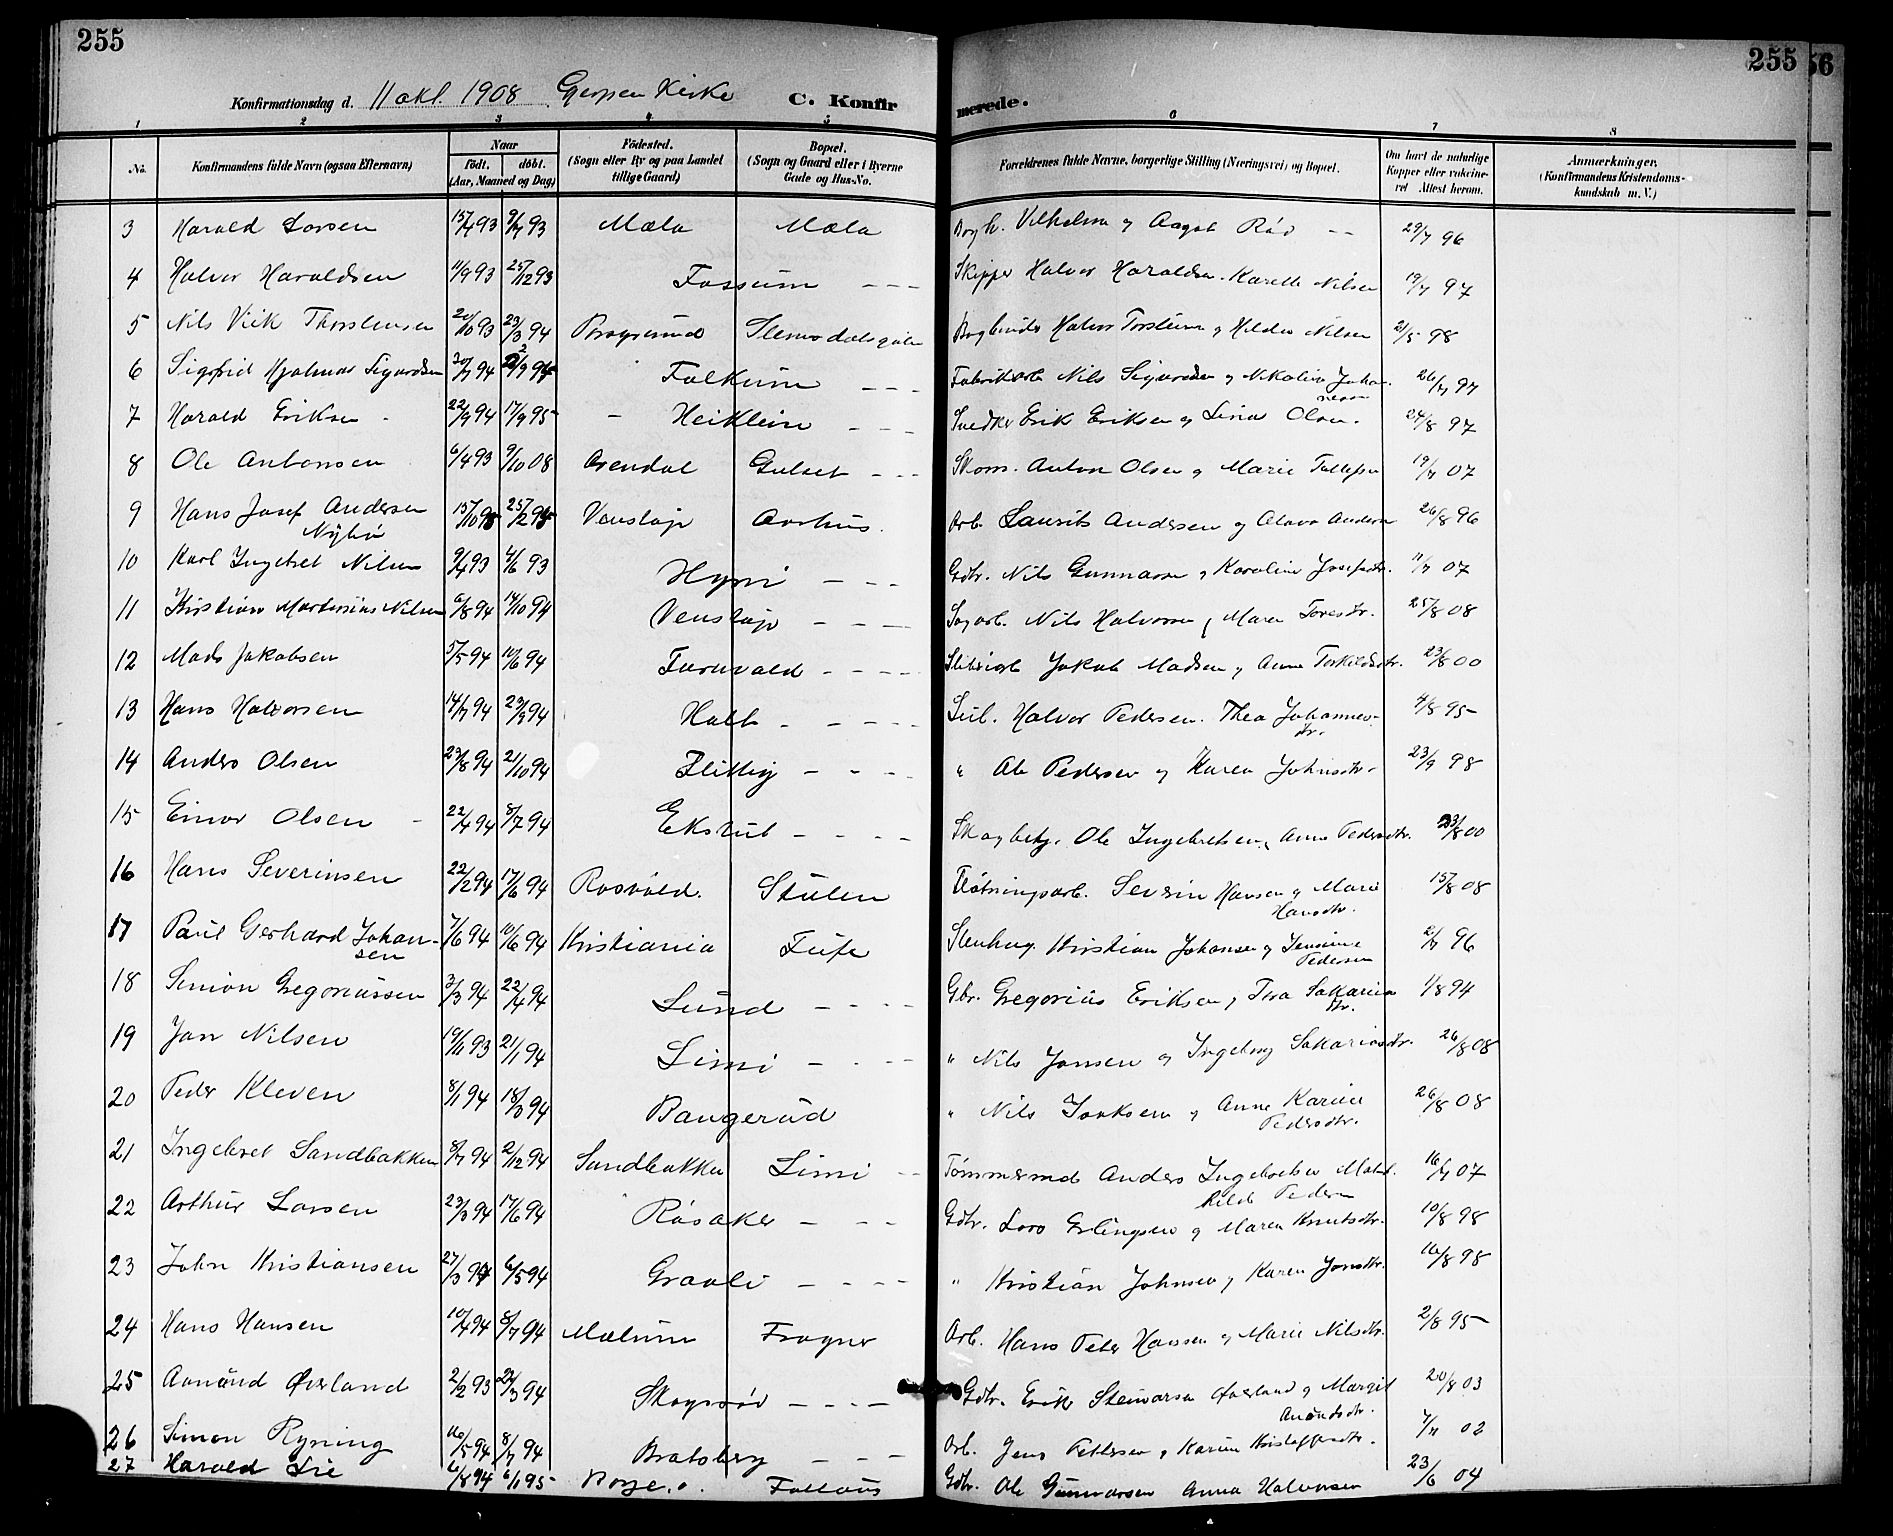 255
255
56
Konfirmationsdag d. 11 okt. 1908 Gjerpen Kirke C. Konfir
merede.
1 2 3 4 5 6 7 8
No.
Konfirmandens fulde Navn (ogsaa Efternavn)
Naar
födt. döbt.
(Aar, Maaned og Dag)
Födested.
(Sogn eller By og paa Landet
tillige Gaard)
Bopæl.
(Sogn og Gaard eller i Byerne
Gade og Hus-No.
Forældrenes fulde Navne, borgerlige Stilling (Næringsvei) og Bopæl.
Om havt de naturlige
Kopper eller vakcine-
ret Attest herom.
Anmærkninger.
(Konfirmandens Kristendoms-
kundskab m. V.)
3 Harald Larsen 15/4 93 9/7 93 Mæla Mæla Vilhelm og Aagot Röd - - 29/7 96
4 Halvor Haraldsen 11/9 93 25/12 93 Fossum - - - Skipper Halvor Haraldsen. Karelle Nilsen 19/7 97
5 Nils Viik Thorstensen 20/10 93 23/3 94 Porsgrund Halvor Torstein og Hilda Nilsen 21/5 98
6 Sigfrid Hjalmar Sigurdsen 30/7 94 Falkum - - - Fabrikarb Nils Sigurdsen og Nikoline Johan-
nesen 26/7 97
7 Harald Eriksen - 22/9 94 17/9 95 - Heiklein - - - Snedker Erik Eriksen og Lina Olsen. 24/8 97
8 Ole Antonsen 6/4 93 9/10 08 Arendal Gulset - - Skom. Anton Olsen og Marie Tollefsen 19/7 07
9 Hans Josef Andersen
Nybö Venstöp Aarhus. Arb. Laurits Andersen og Olava Andersen 26/8 96
10 Karl Ingebret Nilsen 9/4 93 4/6 93 Hyni - - - Gdbr. Nils Gunnarsen og Karoline Josefsdtr. 11/7 07
11 Kristian Martinius Nilsen 6/8 94 14/10 94 Venstöp - - - Sagarb. Nils Halvorsen og Maren Toresdtr. 25/8 08
12 Mads Jakobsen 5/5 94 10/6 94 Furuvald - - - Jakob Madsen og Anne Torkildsdtr. 23/8 00
13 Hans Halvorsen 14/7 94 23/9 94 Halb - - - - Halvor Pedersen. Thea Johannes-
dtr. 4/8 95
14 Anders Olsen 23/8 94 21/10 94 Flittig - - - " Ole Pedersen og Karen Johnsdtr. 23/9 98
15 Einar Olsen - 22/4 94 8/7 94 Ekstut - - - - Ole Ingebretsen, Anne Pedersdtr. 23/8 00
16 Hans Severinsen 22/2 94 17/6 94 Rosvald. Stulen Flötningsarb. Severin Hansen og Marie
Hansdtr. 15/8 08
17 Paul Gerhard Johan-
sen 7/6 94 10/6 94 Kristiania Tufte Stenhug. Kristian Johansen og Jensine
Pedersen 2/7 96
18 Simon Gregoriussen 3/3 94 22/4 94 Lund - - - - Gbr. Gregorius Eriksen og Tora Sakarias
dtr. 1/8 94
19 Jan Nilsen 19/11 93 21/1 94 Limi - - - - " Nils Jansen og Ingeborg Sakariasdtr. 26/8 08
20 Peder Kleven 8/1 94 18/3 94 Bangerud " Nils Isaksen og Anne Karine
Pedersdtr. 26/8 08
21 Ingebret Sandbakken 8/7 94 2/12 94 Sandbakken Limi - - Tömmermd Anders Ingebretsen
Pedersen 16/7 07
22 Arthur Larsen 23/3 94 17/6 94 Rösaker - - - Gdbr. Lars Erlingsen og Maren Knutsdtr. 10/8 98
23 John Kristiansen 27/3 94 6/5 94 Graali - - - - " Kristian Johnsen og Karen Jonsdtr. 16/8 98
24 Hans Hansen 10/4 94 8/7 94 Melum Frogner Arb. Hans Peter Hansen og Marie Nilsdtr. 2/8 95
25 Aanund Överland 2/2 93 Skogsröd - - - - Gdbr. Erik Steinarsen Överland og Margit
Anundsdtr. 20/8 03
26 Simon Ryning 16/5 94 8/7 94 Bratsberg - - - Arb. Jens Pettersen og Karine Kristoffersdtr. 7/11 02
27 Harald Lie 6/8 94 6/1 95 Gdbr. Ole Gunnarsen Anna Halvorsen 23/6 04